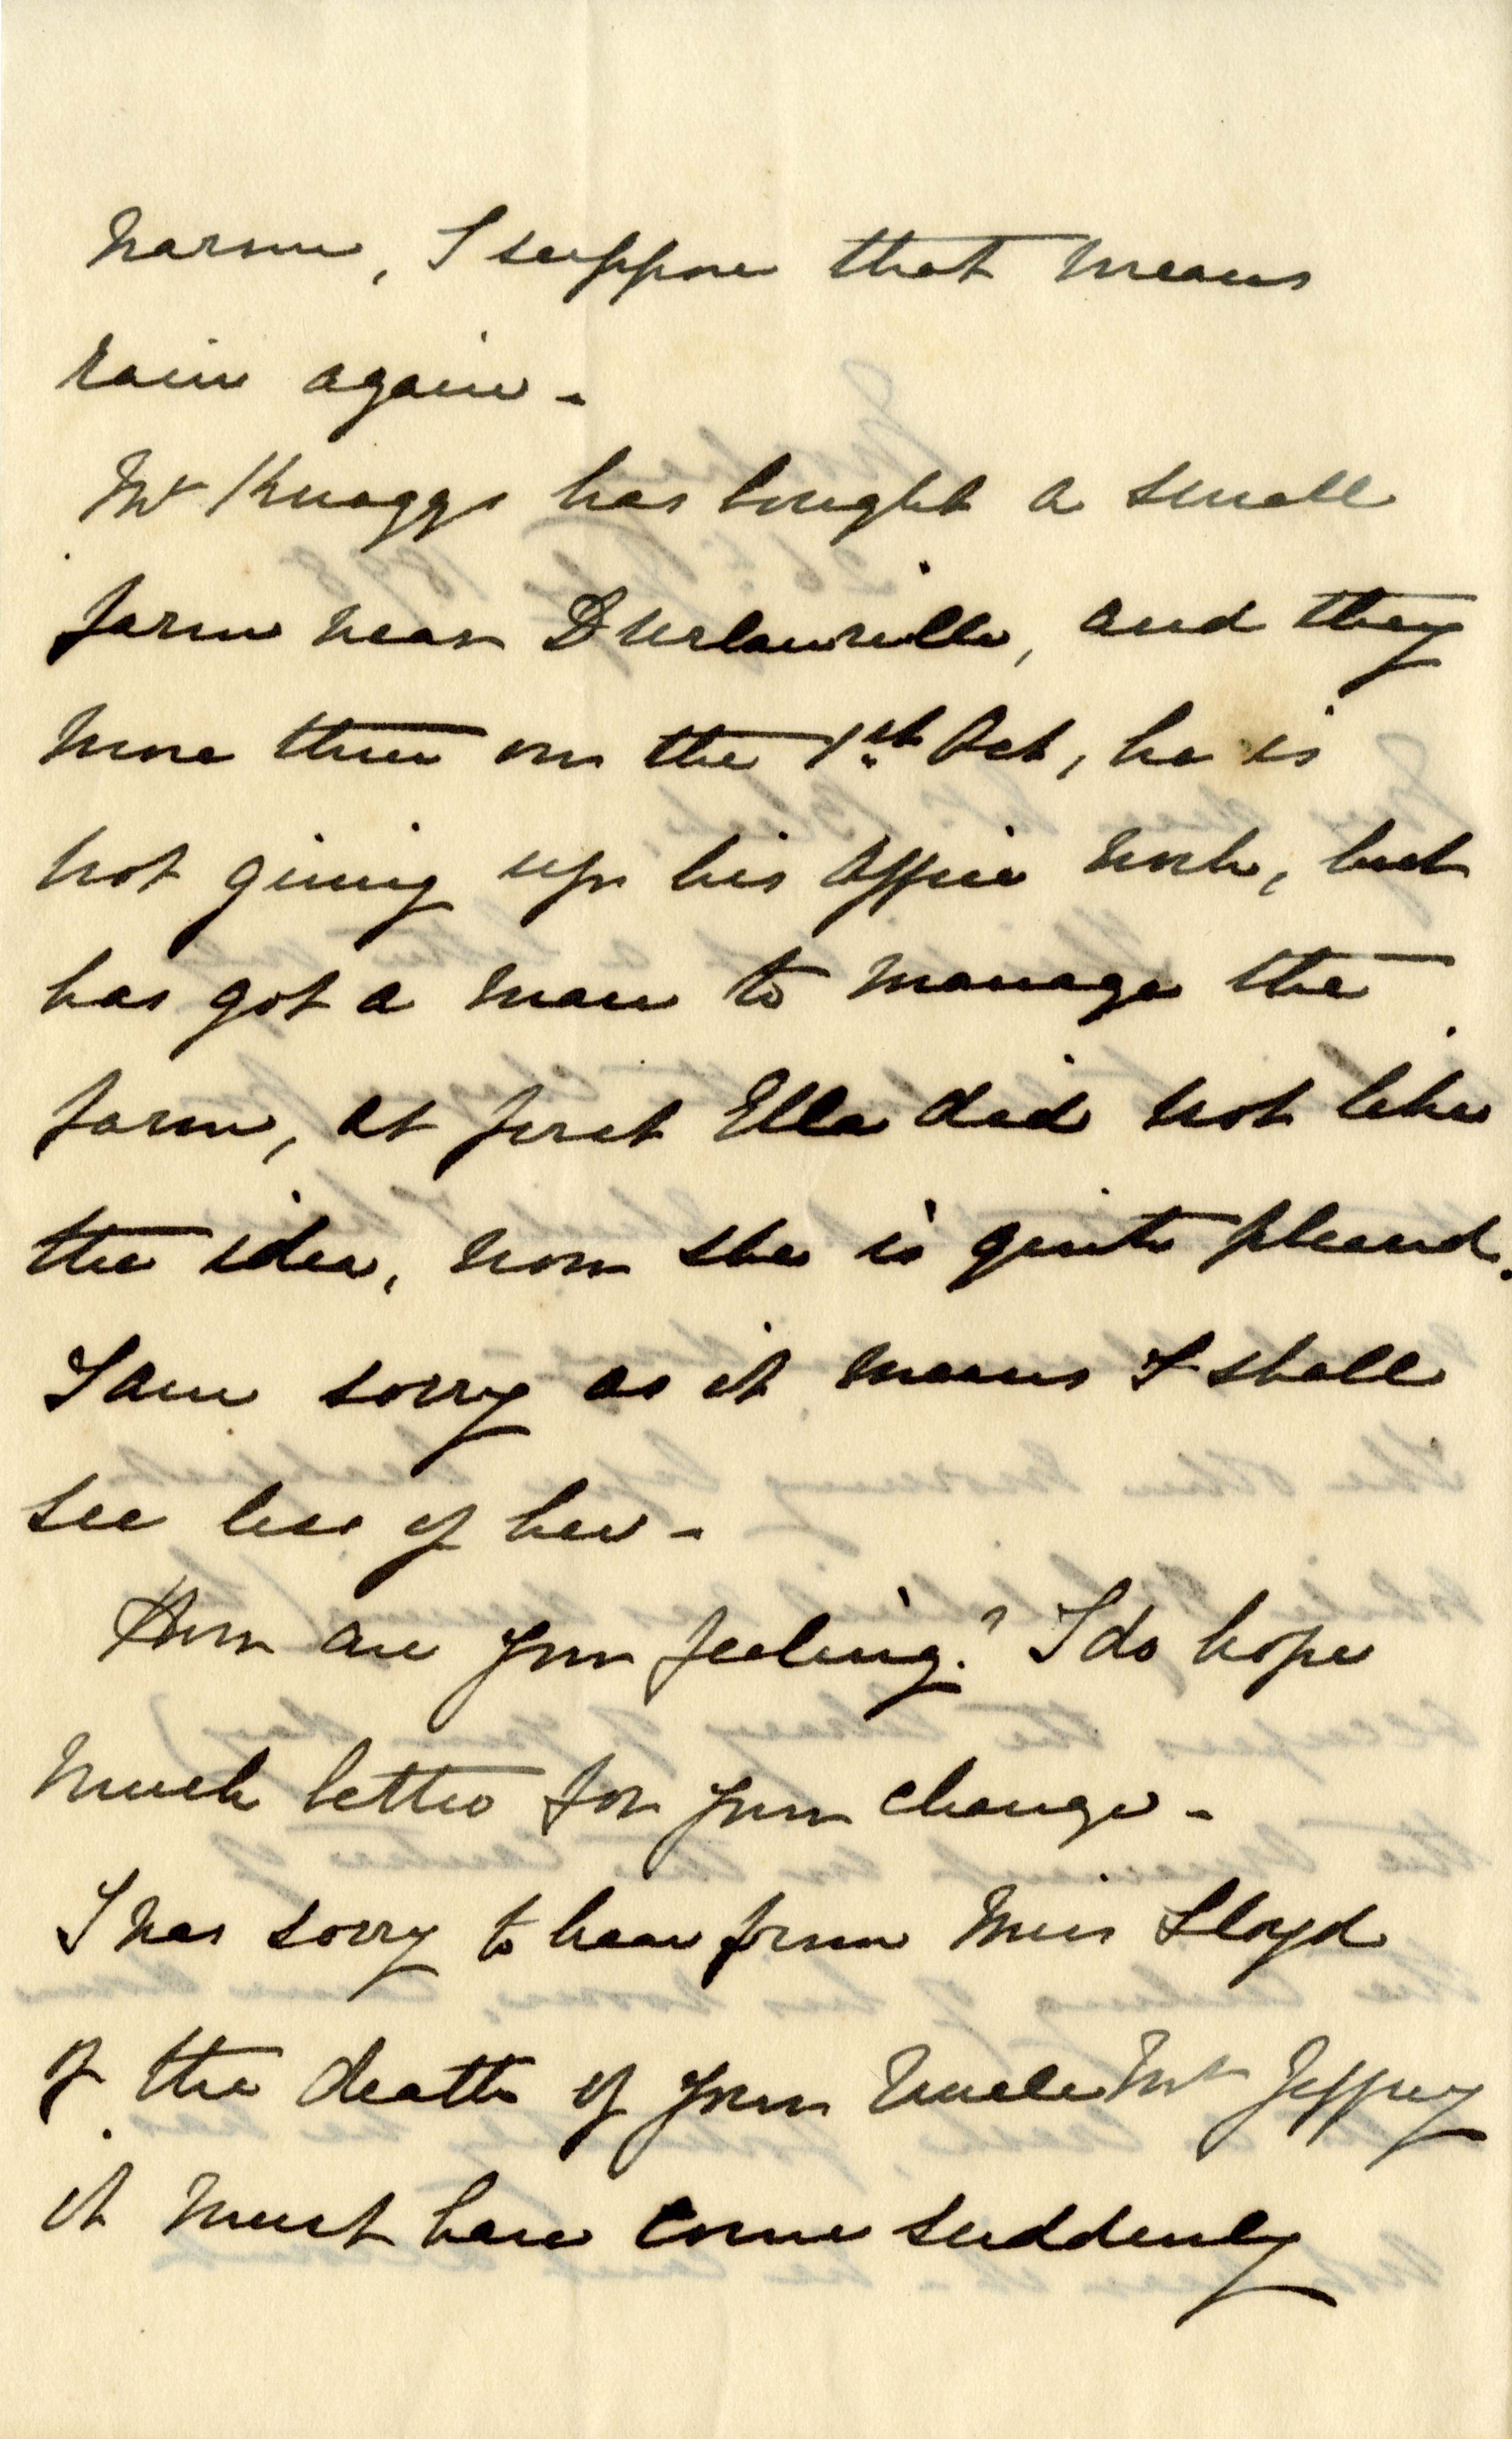 warm, I suppose that means
rain again -
Mr Knaggs has bought a small
farm near Durbanville, and they
move there on the 1st Oct, he is
not giving up his office work, but
has got a man to manage the
farm, at first Ella did not like
the idea, now she is quite pleased.
I am sorry as it means I shall
see less of her -
How are you feeling? I do hope
much better for your change -
I was sorry to hear from Miss Lloyd
of the death of your Uncle Mr Jeffrey
it must have come suddenly